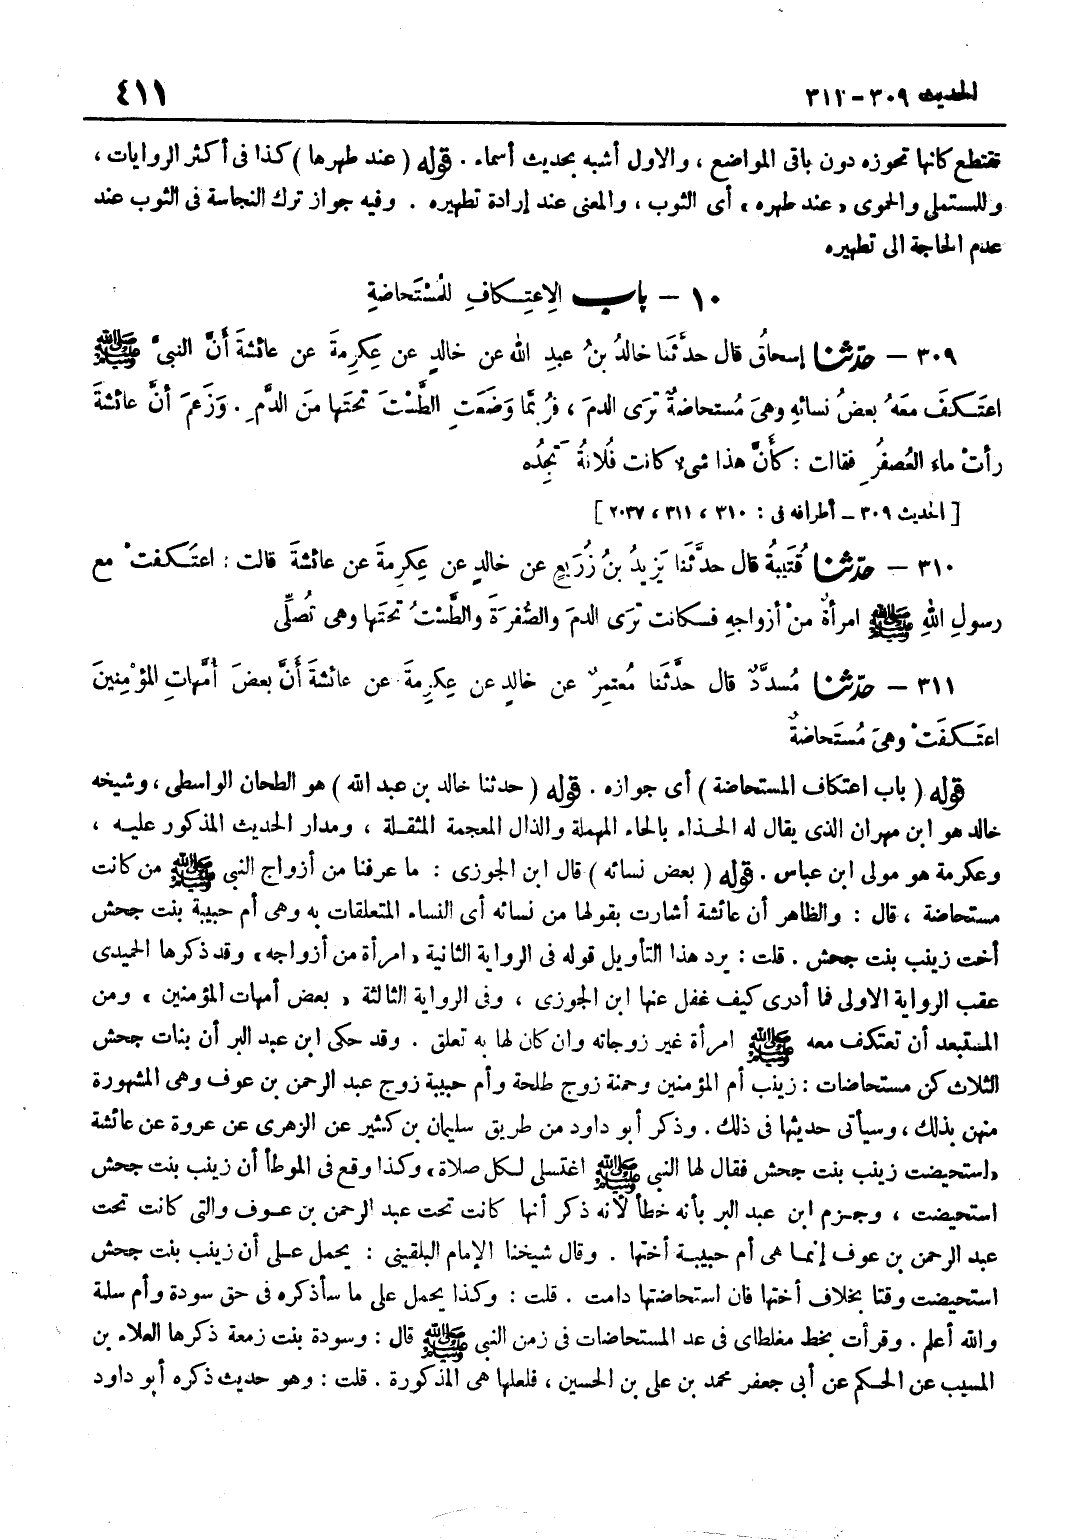 الحديث ٣٠٩ - ٣١٢
٤١١
تقتطع كانها تحوزه دون باقى المواضع ، والاول أشبه بحديث أسماء . قوله ( عند طهرها ) كذا فى أكثر الروايات ،
وللمستملى والحموى « عند طهره » أى الثوب ، والمعنى عند إرادة تطهيره . وفيه جواز ترك النجاسة فى الثوب عند
عدم الحاجة الى تطهيره
١٠ - باب الِاعتِكافِ للمُسْتَحاضةِ
٣٠٩ - حدّثنا إسحاقُ قال حدَّثَنا خالدُ بنُ عبدِ اللهِ عن خالدٍ عن عِكرِمةَ عن عائشةَ أنَّ النبىَّ ﷺ
اعتَكفَ معَهُ بعضُ نسائهِ وهىَ مُستحاضةٌ ترَى الدمَ ، فرُبَّما وَضَعَتِ الطَّسْتَ تحتَها منَ الدَّمِ . وَزَعمَ أنَّ عائشةَ
رأتْ ماءَ العُصفُرِ فقالت : كأنَّ هذا شىء كانت فُلانةُ تَجِدُه
[ الحديث ٣٠٩ - أطرافه فى : ٣١٠ ، ٣١١ ، ٢٠٣٧ ]
٣١٠ - حدّثنا قُتَيبةُ قال حدَّثَنا يزيدُ بنُ زُرَيعٍ عن خالدٍ عن عِكرِمةَ عن عائشةَ قالت : اعتَكفتْ مع
رسولِ اللهِ ﷺ امرأةٌ منْ أزواجهِ فكانت ترَى الدمَ والصُّفرةَ والطَّسْتُ تحتَها وهى تُصلِّى
٣١١ - حدّثنا مُسدَّدٌ قال حدَّثَنا مُعتمِرٌ عن خالدٍ عن عِكرِمةَ عن عائشةَ أنَّ بعضَ أمَّهاتِ المؤْمِنينَ
اعتَكفَتْ وهىَ مُستَحاضةٌ
قوله ( باب اعتكاف المستحاضة ) أى جوازه . قوله ( حدثنا خالد بن عبد الله ) هو الطحان الواسطى ، وشيخه
خالد هو ابن مهران الذى يقال له الحذاء بالحاء المهملة والذال المعجمة المثقلة ، ومدار الحديث المذكور عليه ،
وعكرمة هو مولى ابن عباس . قوله ( بعض نسائه ) قال ابن الجوزى : ما عرفنا من أزواج النبى ﷺ من كانت
مستحاضة ، قال : والظاهر أن عائشة أشارت بقولها من نسائه أى النساء المتعلقات به وهى أم حبيبة بنت جحش
أخت زينب بنت جحش . قلت : يرد هذا التأويل قوله فى الرواية الثانية « امرأة من أزواجه » وقد ذكرها الحميدى
عقب الرواية الاولى فما أدرى كيف غفل عنها ابن الجوزى ، وفى الرواية الثالثة « بعض أمهات المؤمنين » ومن
المستبعد أن تعتكف معه ﷺ امرأة غير زوجاته وان كان لها به تعلق . وقد حكى ابن عبد البر أن بنات جحش
الثلاث كن مستحاضات : زينب أم المؤمنين وحمنة زوج طلحة وأم حبيبة زوج عبد الرحمن بن عوف وهى المشهورة
منهن بذلك ، وسيأتى حديثها فى ذلك . وذكر أبو داود من طريق سليمان بن كثير عن الزهرى عن عروة عن عائشة
« استحيضت زينب بنت جحش فقال لها النبى ﷺ اغتسلى لكل صلاة » وكذا وقع فى الموطأ أن زينب بنت جحش
استحيضت ، وجزم ابن عبد البر بأنه خطأ لأنه ذكر أنها كانت تحت عبد الرحمن بن عوف والتى كانت تحت
عبد الرحمن بن عوف إنما هى أم حبيبة أختها . وقال شيخنا الإمام البلقينى : يحمل على أن زينب بنت جحش
استحيضت وقتا بخلاف أختها فان استحاضتها دامت . قلت : وكذا يحمل على ما سأذكره فى حق سودة وأم سلمة
والله أعلم . وقرأت بخط مغلطاى فى عد المستحاضات فى زمن النبى ﷺ قال : وسودة بنت زمعة ذكرها العلاء بن
المسيب عن الحكم عن أبى جعفر محمد بن على بن الحسين ، فلعلها هى المذكورة . قلت : وهو حديث ذكره أبو داود